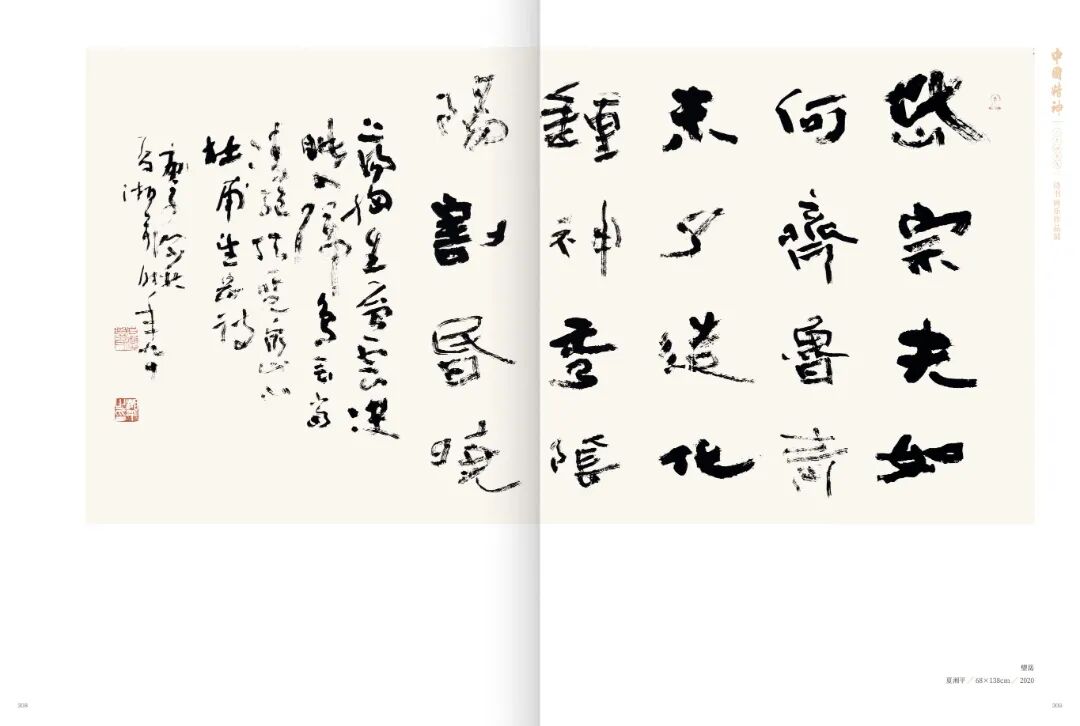 岱宗夫如
何齊魯青
未了造化
鍾神秀陰
陽割昏曉
蕩胸生曾雲決
眥入歸鳥會當
凌絕頂一覽衆山小
杜甫望岳詩
庚子深秋
夏湘平時年九十
中國精神
诗书画乐作品展
望岳
夏湘平／68×138cm／2020
308
309